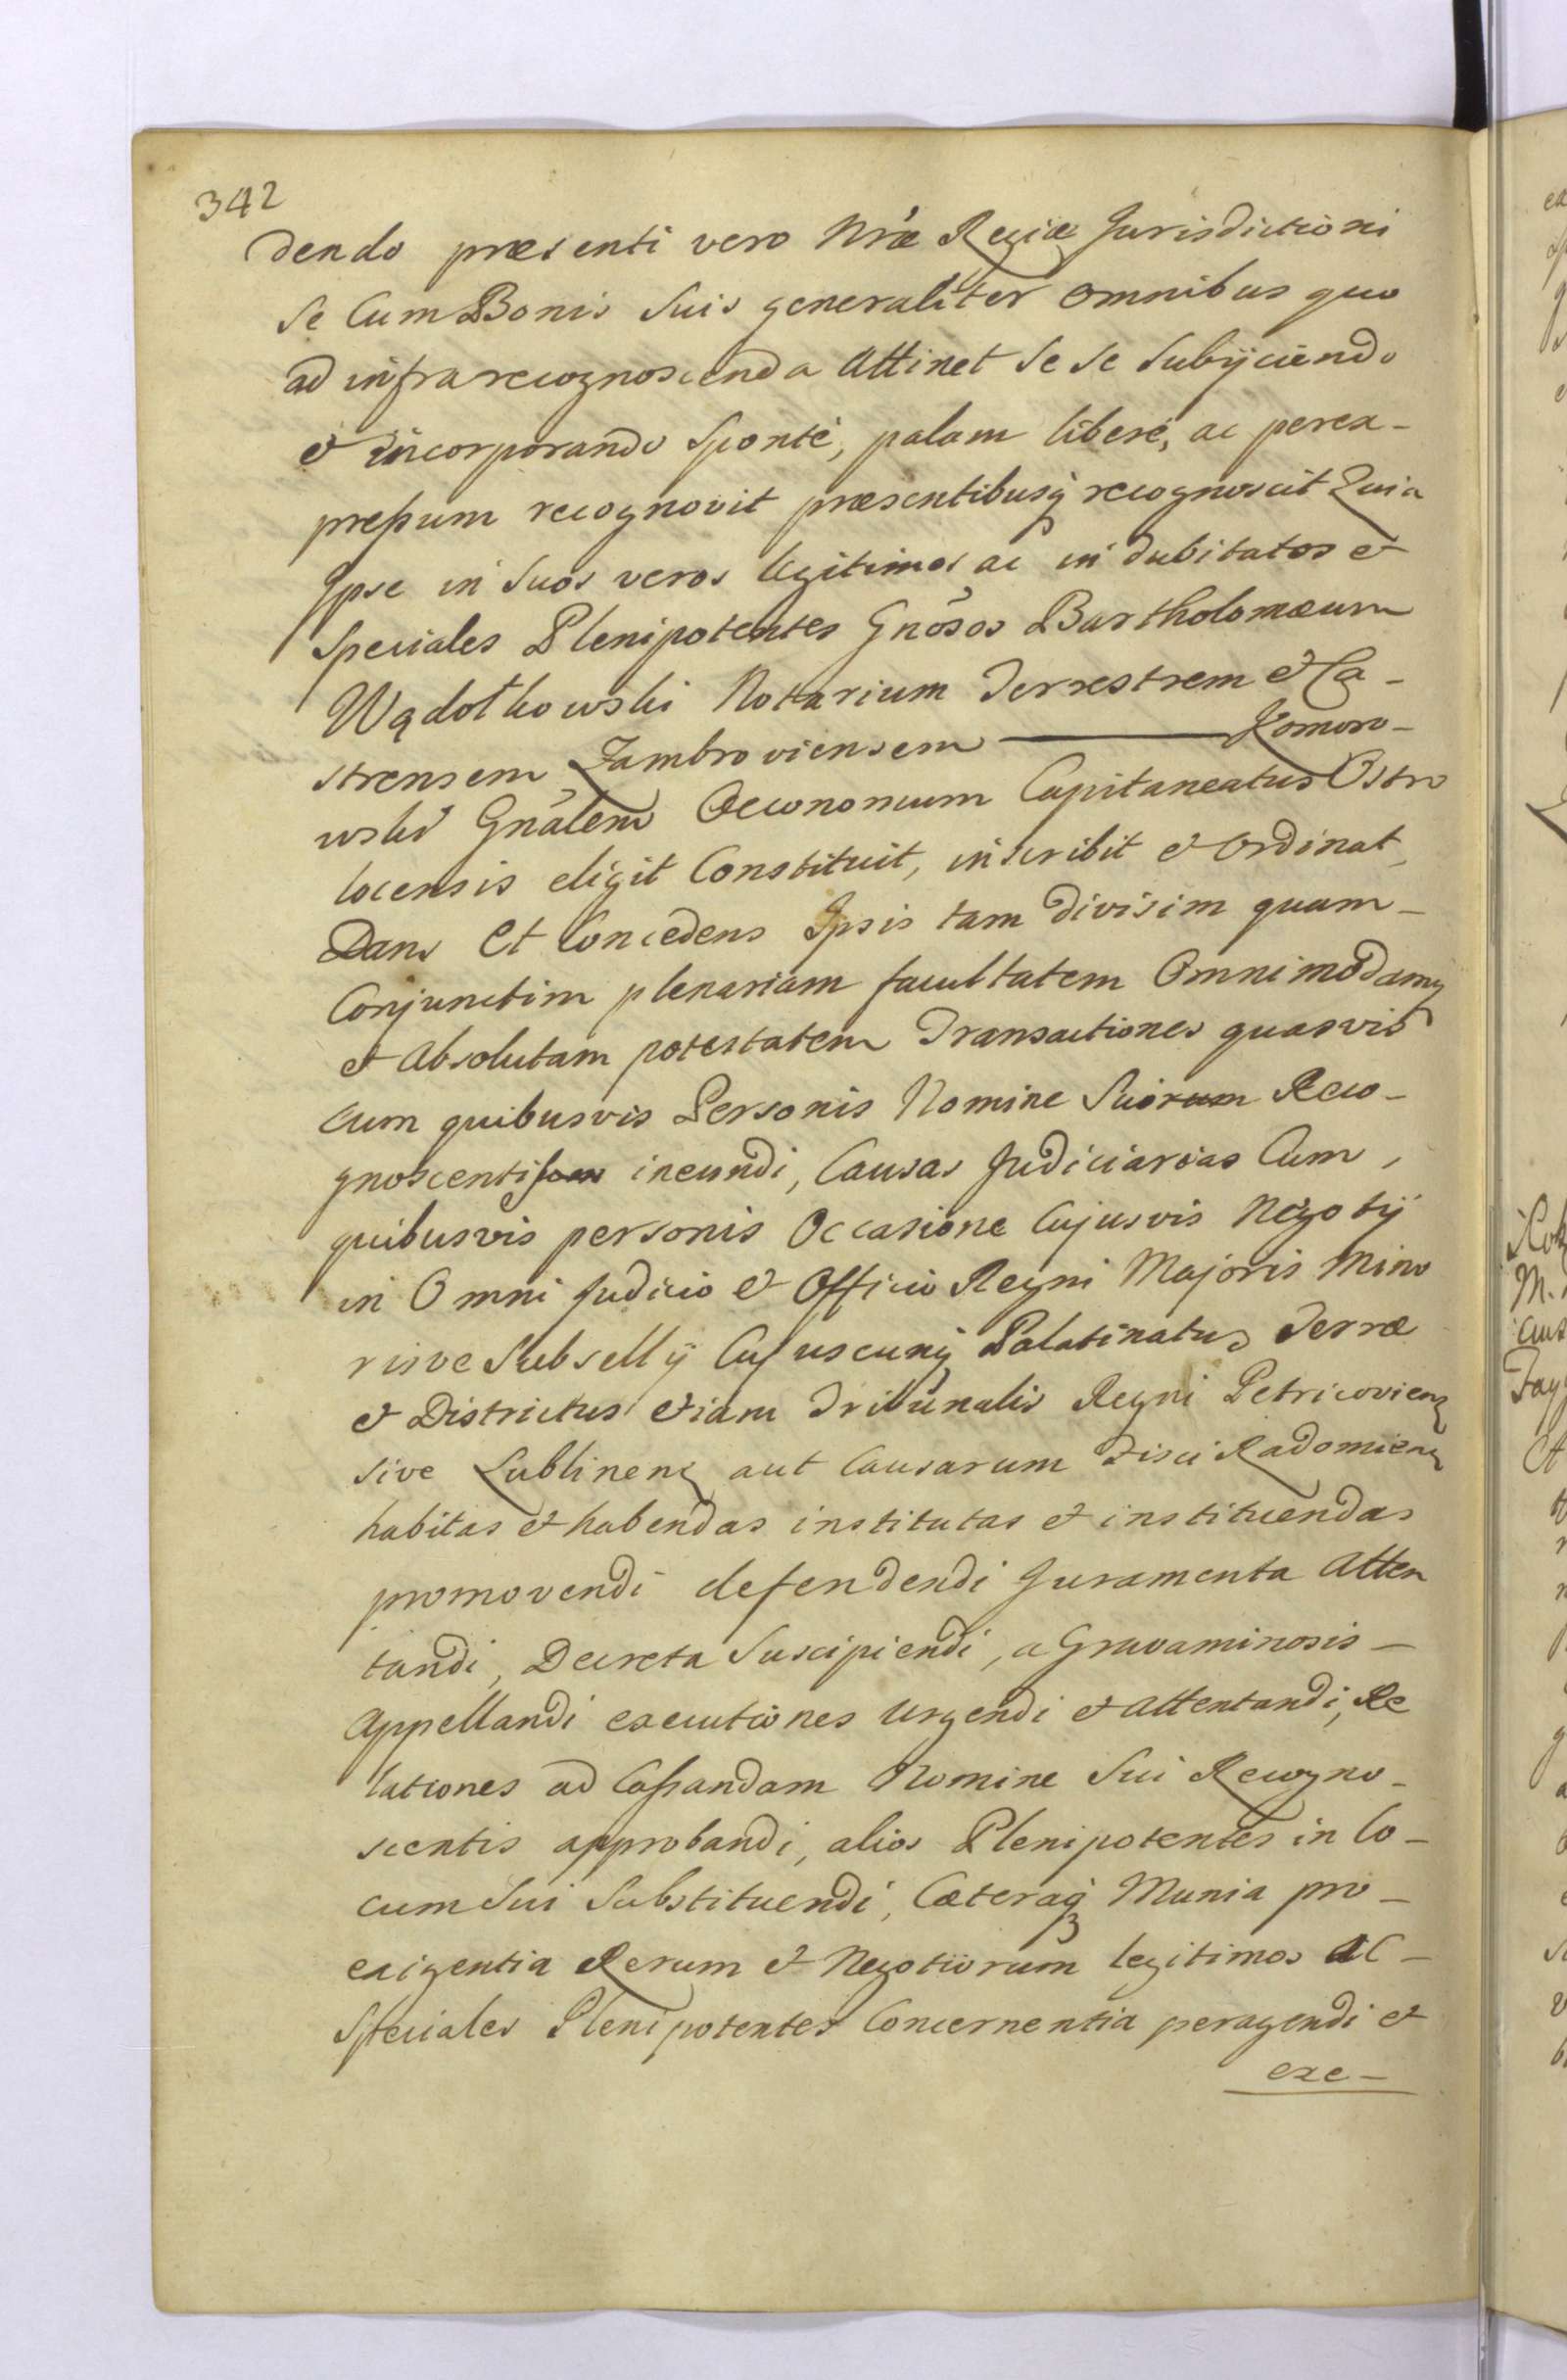 342
dendo præsenti vero Nræ Regiæ Jurisdictioni
se Cum Bonis Suis generaliter omnibus quo
ad infrarecognoscenda Attinet Se Se Subijciendo
et incorporando Sponte, palam libere, ac perex-
preßum recognovit præsentibusq recognoscit Quia
Ipse in Suos veros legitimos ac in dubitatos et
Speciales Plenipotentes Gnõsos Bartholomæum
Wądołkowski Notarium Terrestrem et Ca-
strensem Zambroviensem ——— Komoro-
wski Gnãlem Oeconomum Capitaneatus Ostro
locensis eligit Constituit, inscribit et Ordinat,
Dans Et Concedens Ipsis tam divisim quam-
Conjunctim plenariam facultatem Omnimodamq
et Absolutam potestatem Transactiones quasvis
cum quibusvis Personis Nomine Suiorum Reco-
gnoscentis ineundi, Causas Judiciarias Cum,
quibusvis personis Occasione Cujusvis Negotÿ
in Omni Judicio et Officio Regni Majoris Mino
risve Subsellÿ Cujuscunq Palatinatus Terræ
et Districtus etiam Tribunalis Regni Petricovieng
sive Lublineng aut Causarum Fisci Radomieng
habitas et habendas institutas et instituendas
promovendi defendendi Juramenta Atten
tandi, Decreta Suscipiendi, a Gravaminosis-
Appellandi executiones Urgendi et Attentandi, Re
lationes ad Caßandam Nomine Sui Recogno-
scentis approbandi, alios Plenipotentes in lo-
cum Sui Substituendi, Cæteraq Munia pro-
exigentia Rerum et Negotiorum legitimos AC-
Speciales Plenipotentes Concernentia peragendi et
exe-